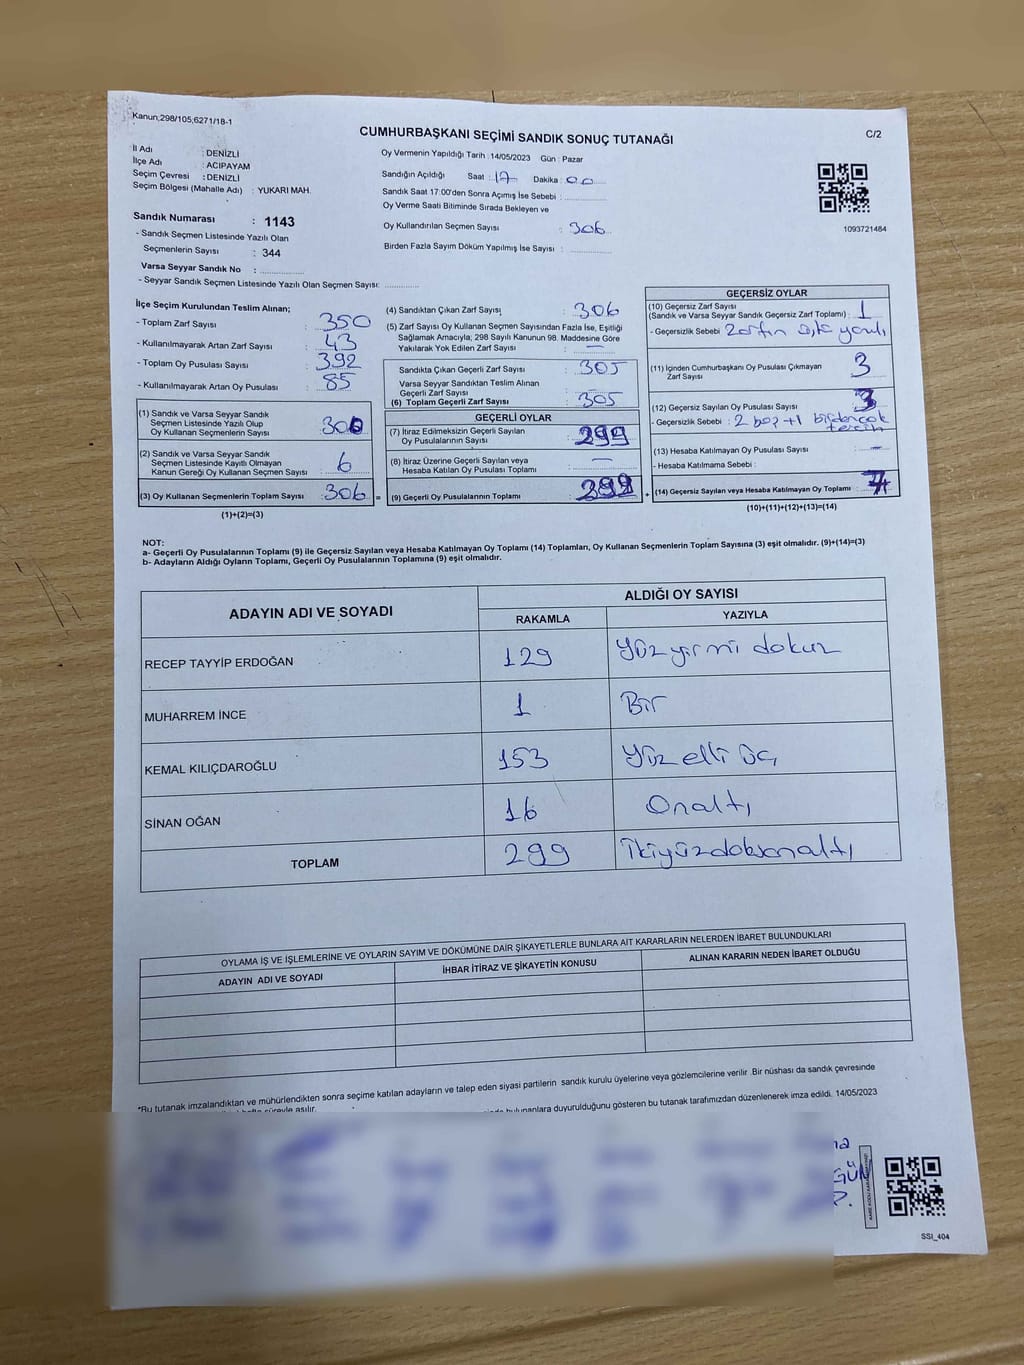 Kanun;298/105;6271/18-1
CUMHURBAŞKANI SEÇİMİ SANDIK SONUÇ TUTANAĞI
C/2
İl Adı : DENİZLİ
İlçe Adı : ACIPAYAM
Seçim Çevresi : DENİZLİ
Seçim Bölgesi (Mahalle Adı) : YUKARI MAH.
Sandık Numarası : 1143
- Sandık Seçmen Listesinde Yazılı Olan
Seçmenlerin Sayısı : 344
Varsa Seyyar Sandık No : ..............
- Seyyar Sandık Seçmen Listesinde Yazılı Olan Seçmen Sayısı: ..............
Oy Vermenin Yapıldığı Tarih : 14/05/2023 Gün : Pazar
Sandığın Açıldığı Saat : 17 Dakika : 00
Sandık Saat 17:00'den Sonra Açımış İse Sebebi : ..............
Oy Verme Saati Bitiminde Sırada Bekleyen ve
Oy Kullandırılan Seçmen Sayısı : 306
Birden Fazla Sayım Döküm Yapılmış İse Sayısı : ..............
1093721484
İlçe Seçim Kurulundan Teslim Alınan;
- Toplam Zarf Sayısı : 350
- Kullanılmayarak Artan Zarf Sayısı : 43
- Toplam Oy Pusulası Sayısı : 392
- Kullanılmayarak Artan Oy Pusulası : 85
(1) Sandık ve Varsa Seyyar Sandık
Seçmen Listesinde Yazılı Olup
Oy Kullanan Seçmenlerin Sayısı : 300
(2) Sandık ve Varsa Seyyar Sandık
Seçmen Listesinde Kayıtlı Olmayan
Kanun Gereği Oy Kullanan Seçmen Sayısı : 6
(3) Oy Kullanan Seçmenlerin Toplam Sayısı : 306 =
(1)+(2)=(3)
(4) Sandıktan Çıkan Zarf Sayısı : 306
(5) Zarf Sayısı Oy Kullanan Seçmen Sayısından Fazla İse, Eşitliği
Sağlamak Amacıyla; 298 Sayılı Kanunun 98. Maddesine Göre
Yakılarak Yok Edilen Zarf Sayısı : —
Sandıkta Çıkan Geçerli Zarf Sayısı : 305
Varsa Seyyar Sandıktan Teslim Alınan
Geçerli Zarf Sayısı : —
(6) Toplam Geçerli Zarf Sayısı : 305
GEÇERLİ OYLAR
(7) İtiraz Edilmeksizin Geçerli Sayılan
Oy Pusulalarının Sayısı : 299
(8) İtiraz Üzerine Geçerli Sayılan veya
Hesaba Katılan Oy Pusulası Toplamı : —
(9) Geçerli Oy Pusulalarının Toplamı : 299 +
GEÇERSİZ OYLAR
(10) Geçersiz Zarf Sayısı
(Sandık ve Varsa Seyyar Sandık Geçersiz Zarf Toplamı) : 1
- Geçersizlik Sebebi : Zarfın
(11) İçinden Cumhurbaşkanı Oy Pusulası Çıkmayan
Zarf Sayısı 3
(12) Geçersiz Sayılan Oy Pusulası Sayısı : 3
- Geçersizlik Sebebi : 2 boş +1
(13) Hesaba Katılmayan Oy Pusulası Sayısı : —
- Hesaba Katılmama Sebebi :
(14) Geçersiz Sayılan veya Hesaba Katılmayan Oy Toplamı : 7
(10)+(11)+(12)+(13)=(14)
NOT:
a- Geçerli Oy Pusulalarının Toplamı (9) ile Geçersiz Sayılan veya Hesaba Katılmayan Oy Toplamı (14) Toplamları, Oy Kullanan Seçmenlerin Toplam Sayısına (3) eşit olmalıdır. (9)+(14)=(3)
b- Adayların Aldığı Oyların Toplamı, Geçerli Oy Pusulalarının Toplamına (9) eşit olmalıdır.
ADAYIN ADI VE SOYADI
ALDIĞI OY SAYISI
RAKAMLA YAZIYLA
RECEP TAYYİP ERDOĞAN 129 Yüzyirmi dokuz
MUHARREM İNCE 1 Bir
KEMAL KILIÇDAROĞLU 153 Yüz elli üç
SİNAN OĞAN 16 Onaltı
TOPLAM 299 İkiyüzdoksanaltı
OYLAMA İŞ VE İŞLEMLERİNE VE OYLARIN SAYIM VE DÖKÜMÜNE DAİR ŞİKAYETLERLE BUNLARA AİT KARARLARIN NELERDEN İBARET BULUNDUKLARI
ADAYIN ADI VE SOYADI İHBAR İTİRAZ VE ŞİKAYETİN KONUSU ALINAN KARARIN NEDEN İBARET OLDUĞU
*Bu tutanak imzalandıktan ve mühürlendikten sonra seçime katılan adayların ve talep eden siyasi partilerin sandık kurulu üyelerine veya gözlemcilerine verilir .Bir nüshası da sandık çevresinde
süreyle asılır.
bulunanlara duyurulduğunu gösteren bu tutanak tarafımızdan düzenlenerek imza edildi. 14/05/2023
GÜN
SSI_404